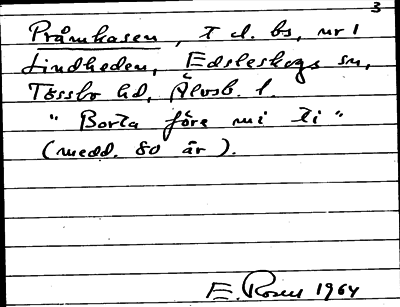 3
Pråmkasen, T d. bs, nr 1
Lindheden, Edsleskogs sn,
Tössbo hd, Älvsb. l.
" Borta före mi ti "
(medd. 80 år ).
E. Rosen 1964